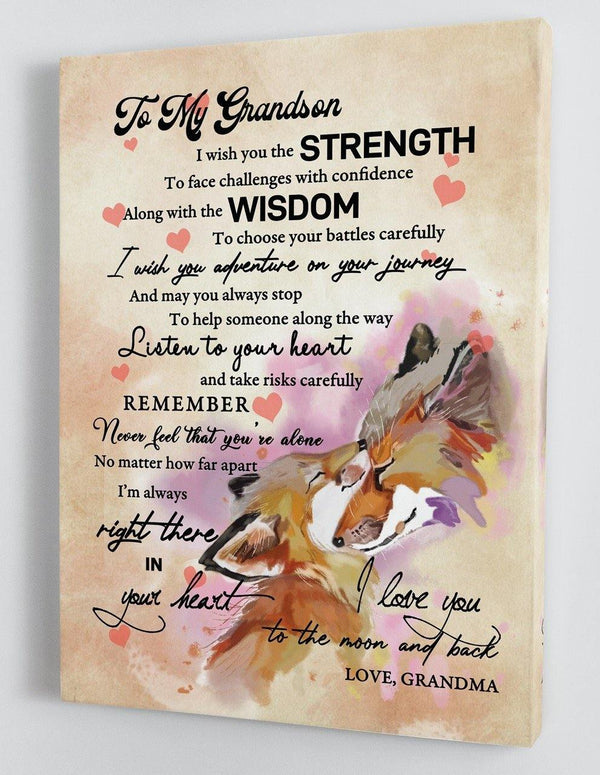 To My Grandson
I wish you the STRENGTH
To face challenges with confidence
Along with the WISDOM
To choose your battles carefully
I wish you adventure on your journey
And may you always stop
To help someone along the way
Listen to your heart
and take risks carefully
REMEMBER
Never feel that you're alone
No matter how far apart
I'm always
right there
IN
your heart
I love you
to the moon and back
LOVE, GRANDMA